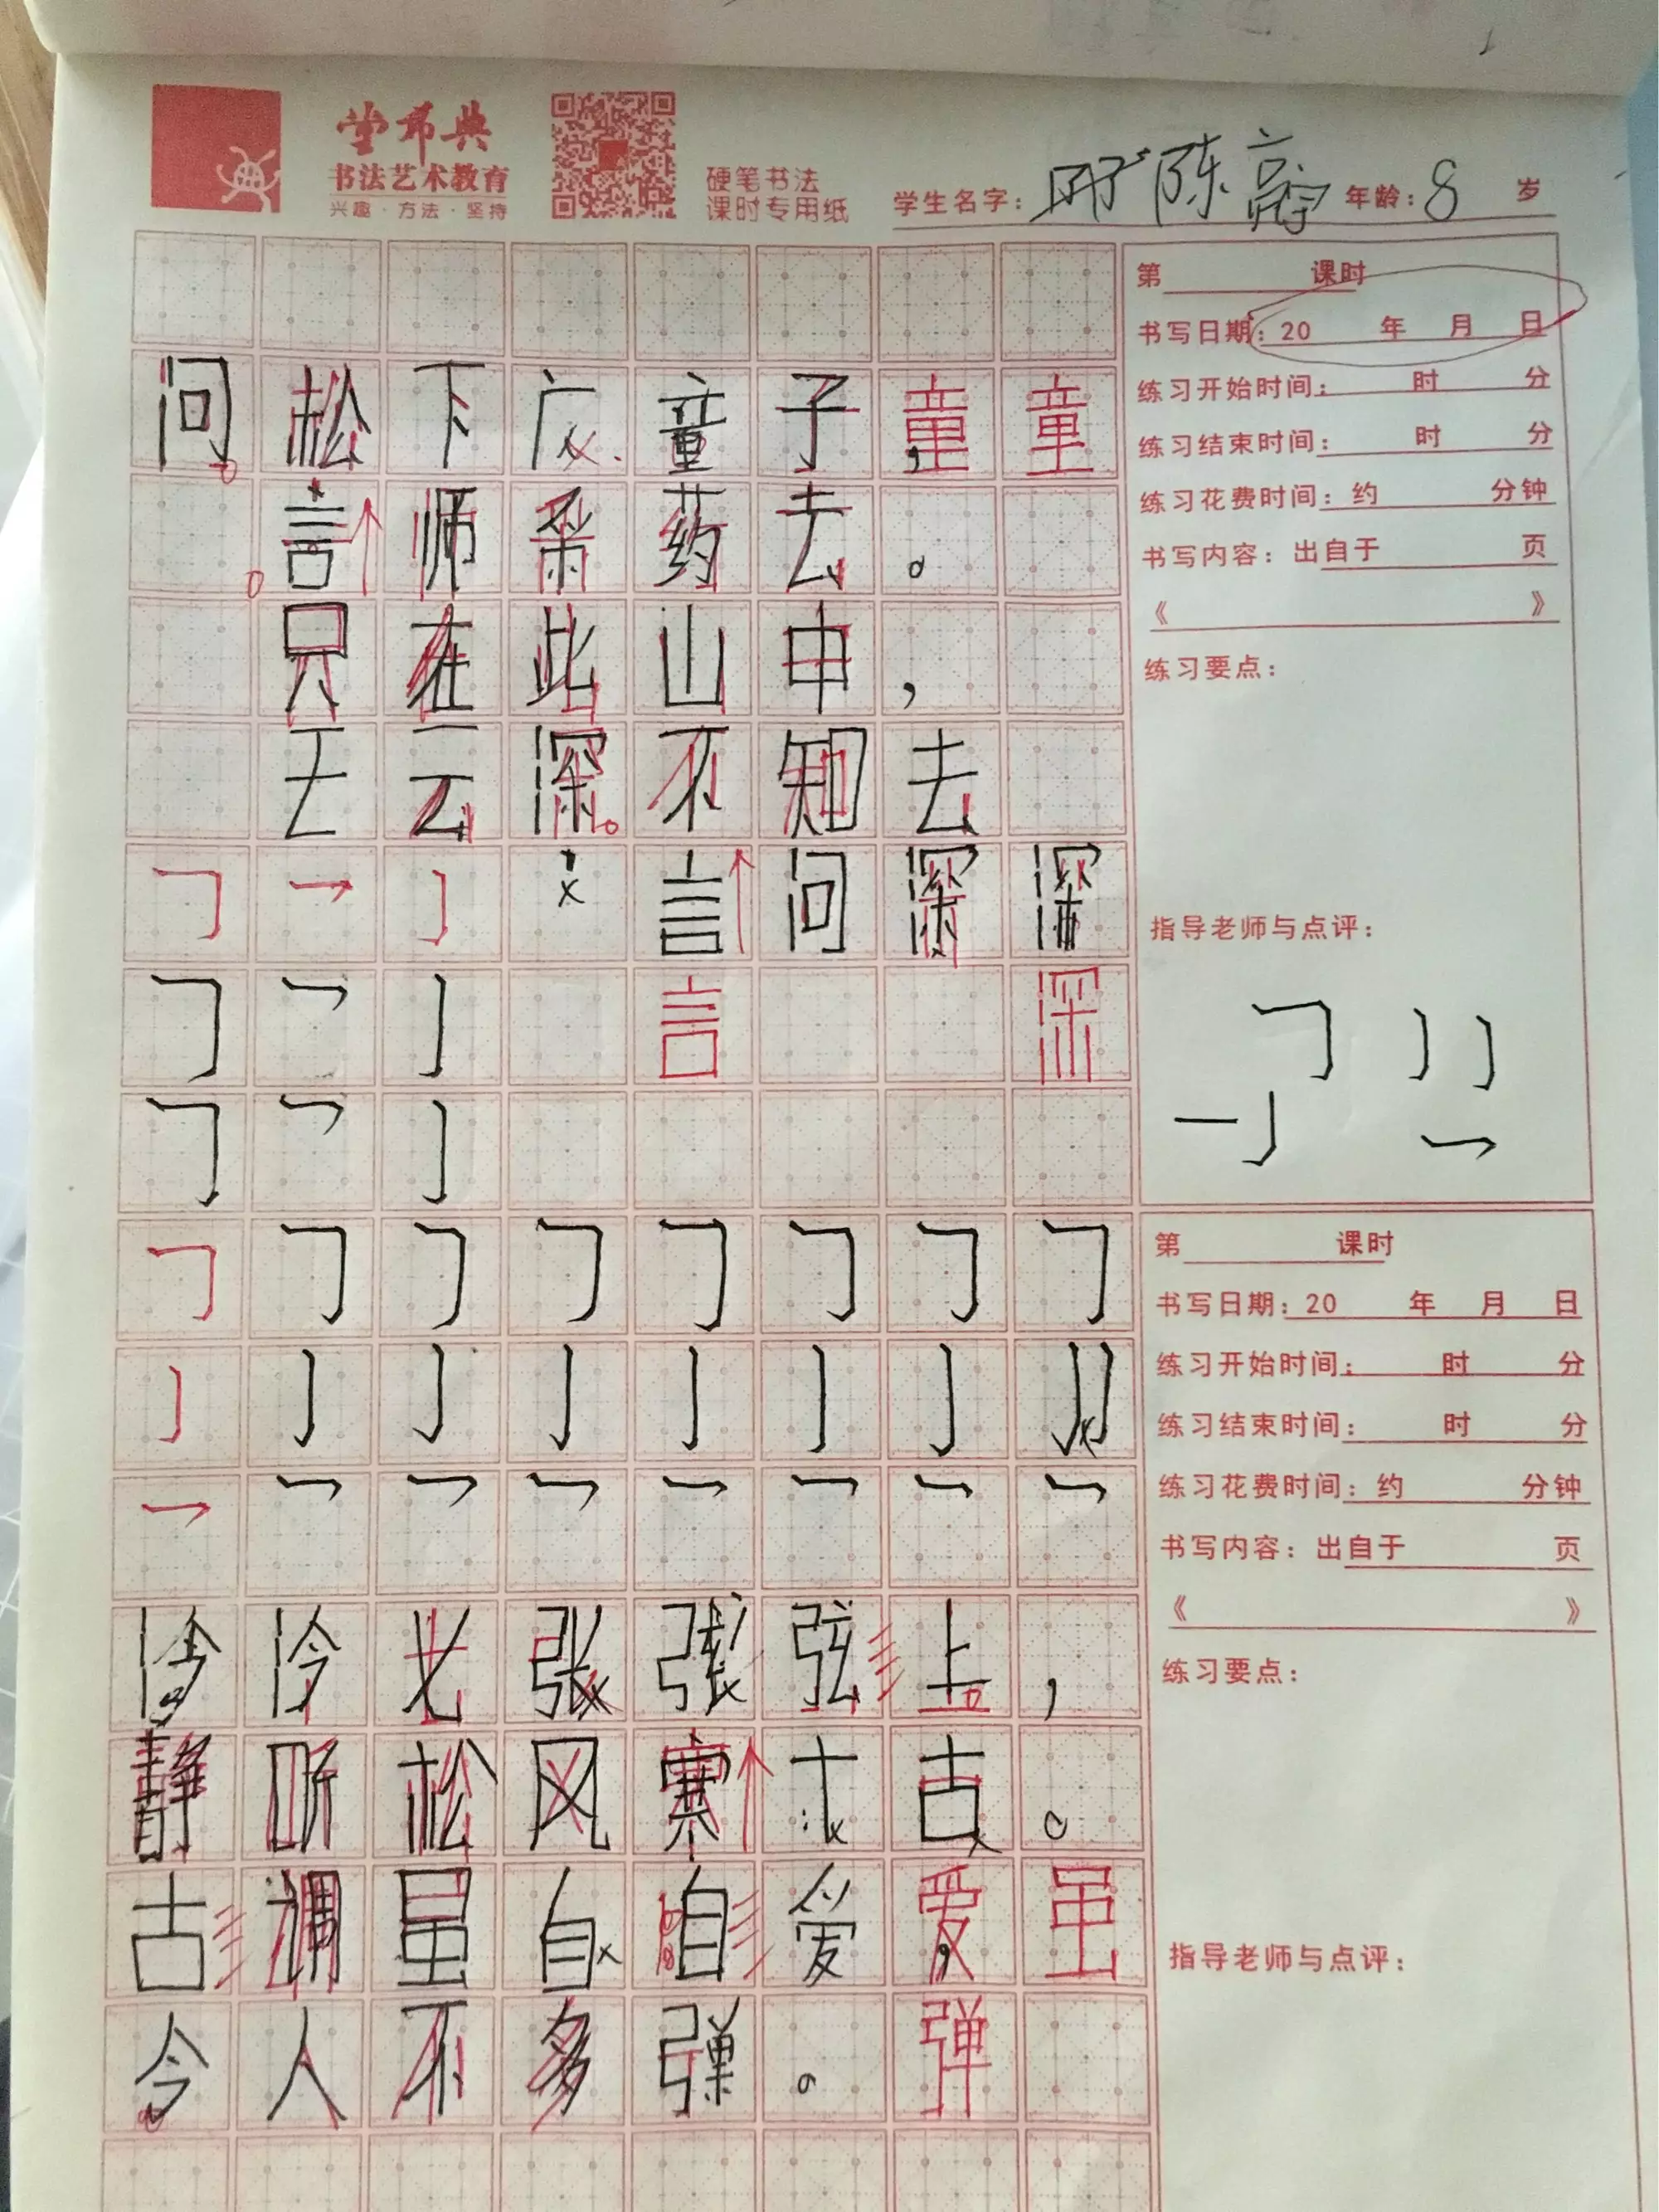 堂币典
书法艺术教育
兴趣·方法·坚持
硬笔书法
课时专用纸
学生名字： 陈 年龄：8 岁
第 课时
书写日期：20 年 月 日
练习开始时间： 时 分
练习结束时间： 时 分
练习花费时间：约 分钟
书写内容：出自于 页
《 》
练习要点：
指导老师与点评：
问松下 童子，童
言师采药去。
只在此山中，
云深不知去
言问深深
言 深
第 课时
书写日期：20 年 月 日
练习开始时间： 时 分
练习结束时间： 时 分
练习花费时间：约 分钟
书写内容：出自于 页
《 》
练习要点：
指导老师与点评：
泠 弦上，
静听松风寒 古。
古调虽自自爱爱虽
今人不多弹。弹